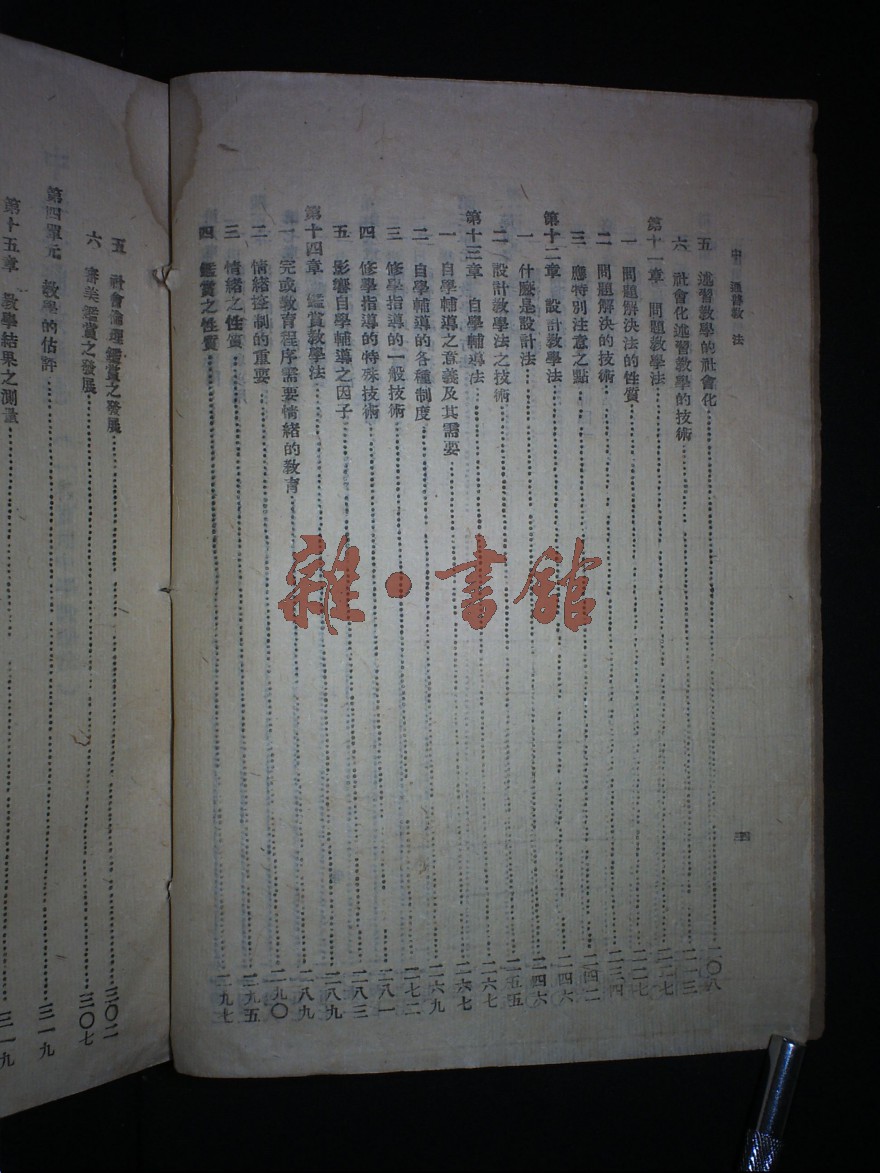 中 通習教 法
五 述習教學的社會化 二〇八
六 社會化述習教學的技術 二一三
第十一章 問題教學法 二二七
一 問題解決法的性質 二二七
二 問題解決的技術 二三四
三 應特別注意之點 二四二
第十二章 設計教學法 二四六
一 什麼是設計法 二四六
二 設計教學法之技術 二五五
第十三章 自學輔導法 二六七
一 自學輔導之意義及其需要 二六七
二 自學輔導的各種制度 二六九
三 修學指導的一般技術 二七二
四 修學指導的特殊技術 二八一
五 影響自學輔導之因子 二八三
第十四章 鑑賞教學法 二八九
一 完成教育程序需要情緒的教育 二八九
二 情緒控制的重要 二九〇
三 情緒之性質 二九五
四 鑑賞之性質 二九七
五 社會倫理鑑賞之發展 三〇二
六 審美鑑賞之發展 三〇七
第四單元 教學的估評 三一九
第十五章 教學結果之測量 三一九
雜·書館